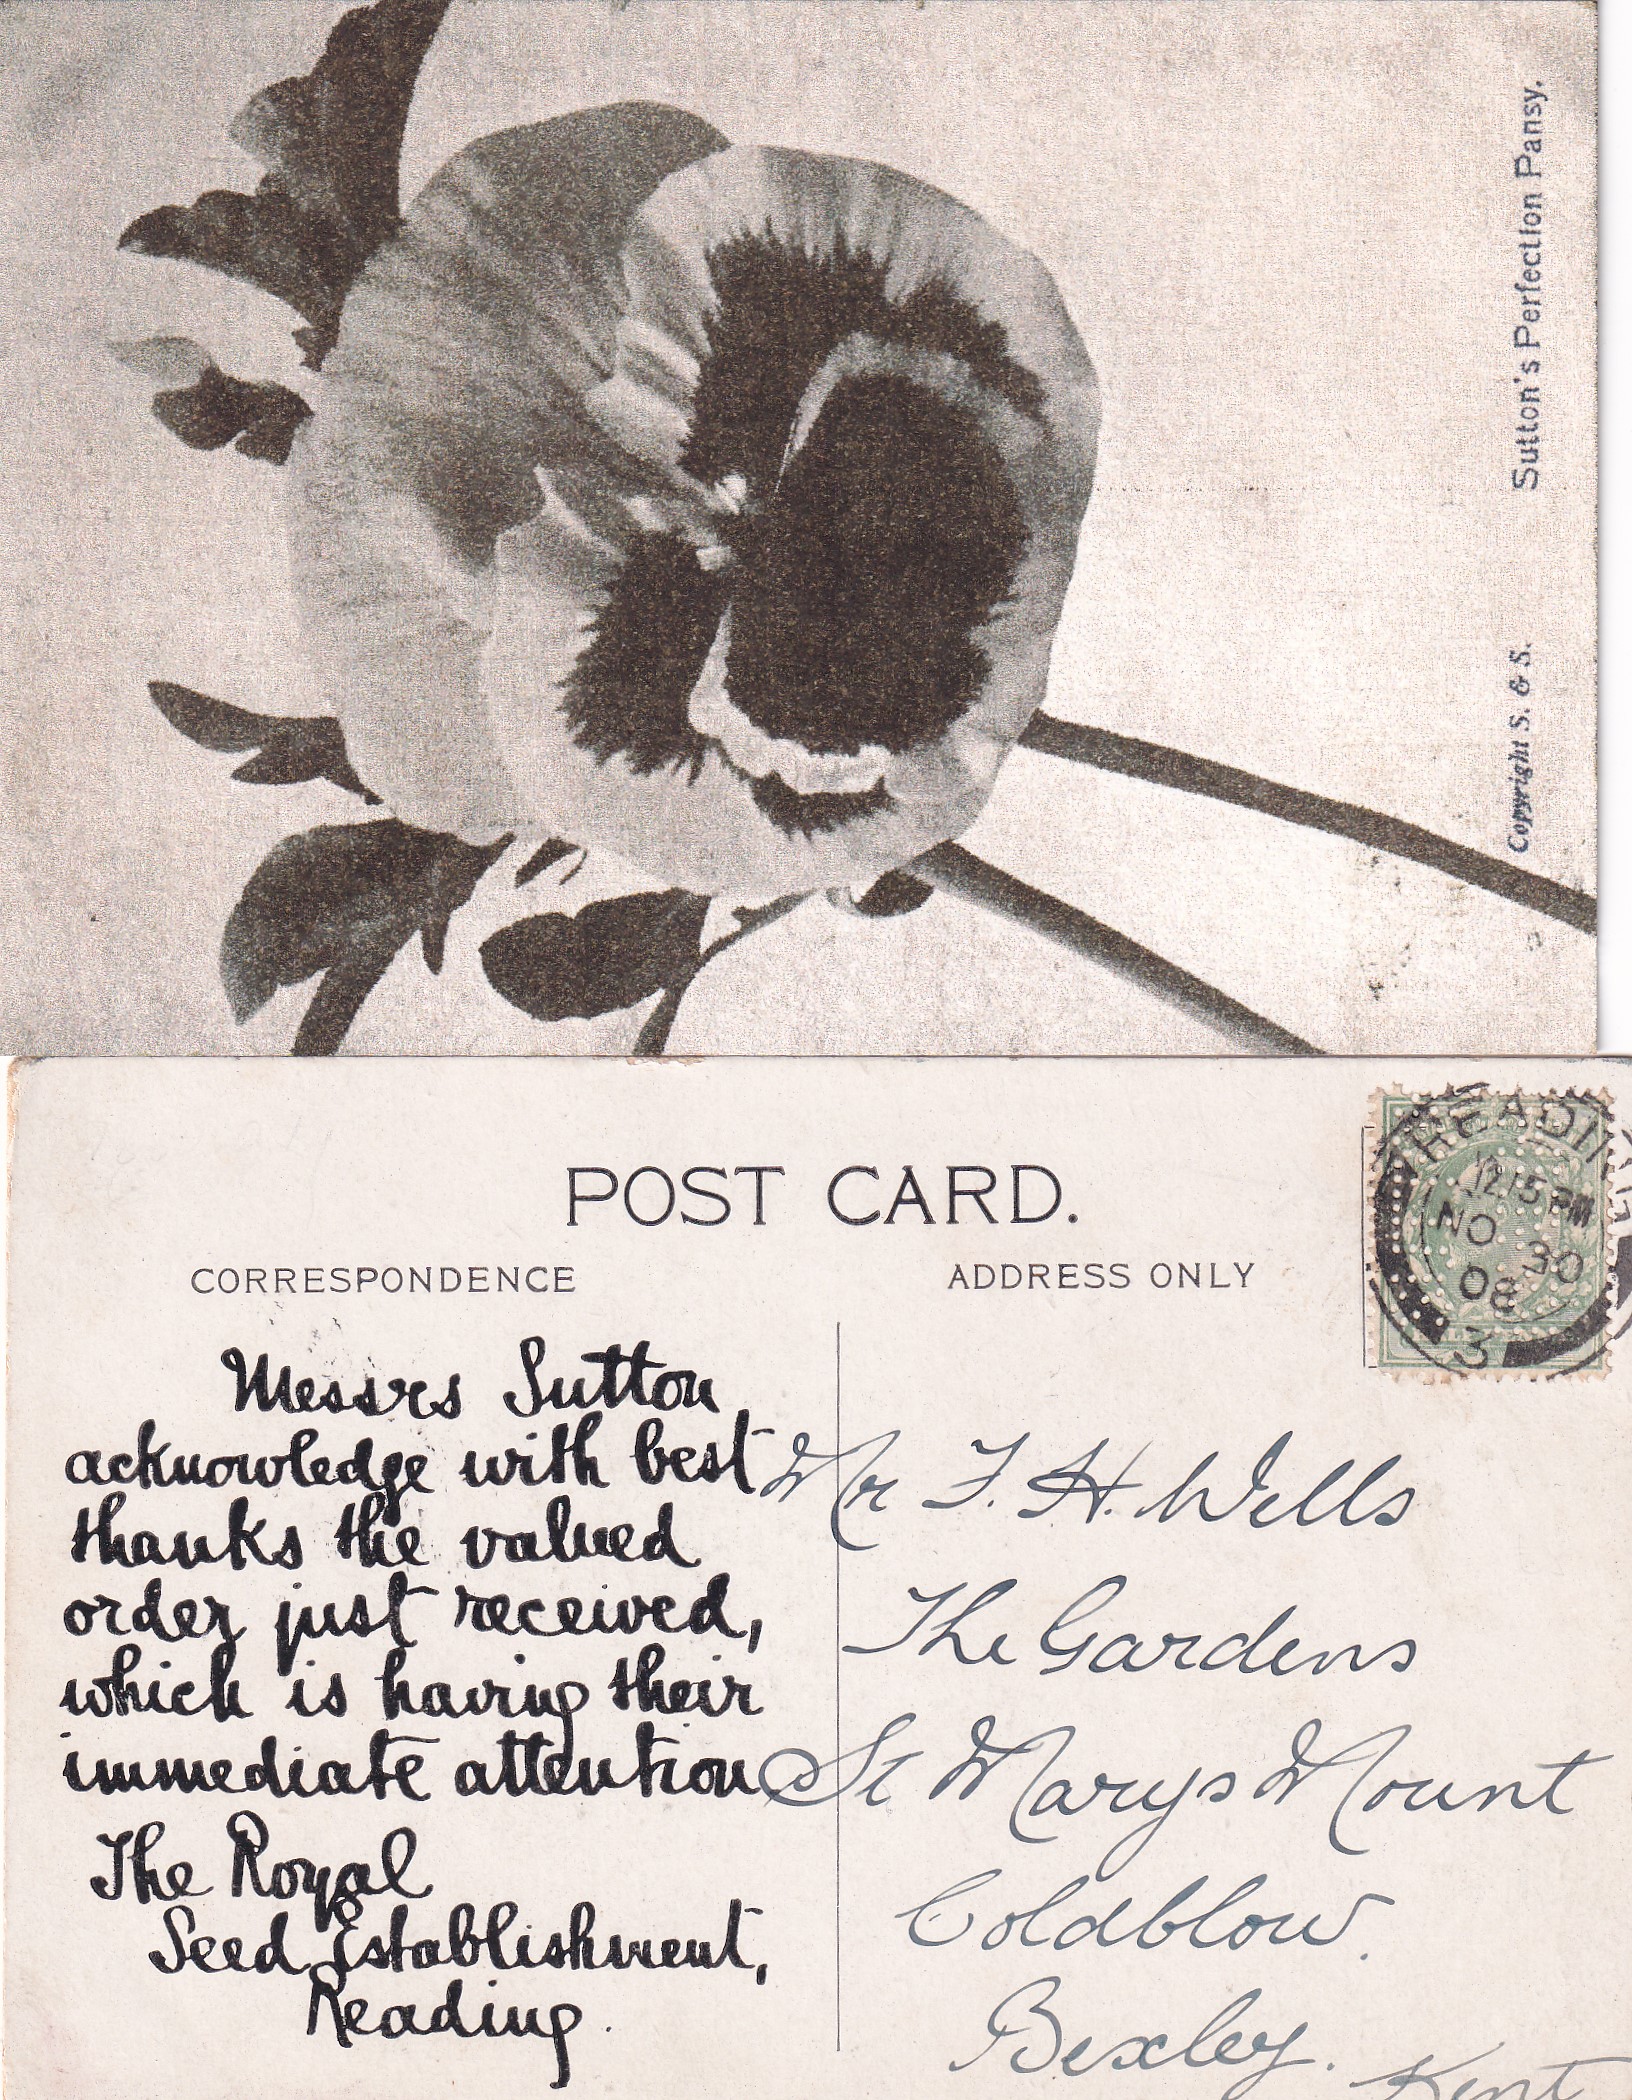 Sutton's Perfection Pansy.
Copyright S. & S.
POST CARD.
CORRESPONDENCE
ADDRESS ONLY
READING
12 15 PM
NO 30
08
3
Messrs Sutton
acknowledge with best
thanks the valued
order just received,
which is having their
immediate attention
The Royal
Seed Establishment,
Reading.
Mr F. H. Wells
The Gardens
St Marys Mount
Coldblow.
Bexley.
Kent